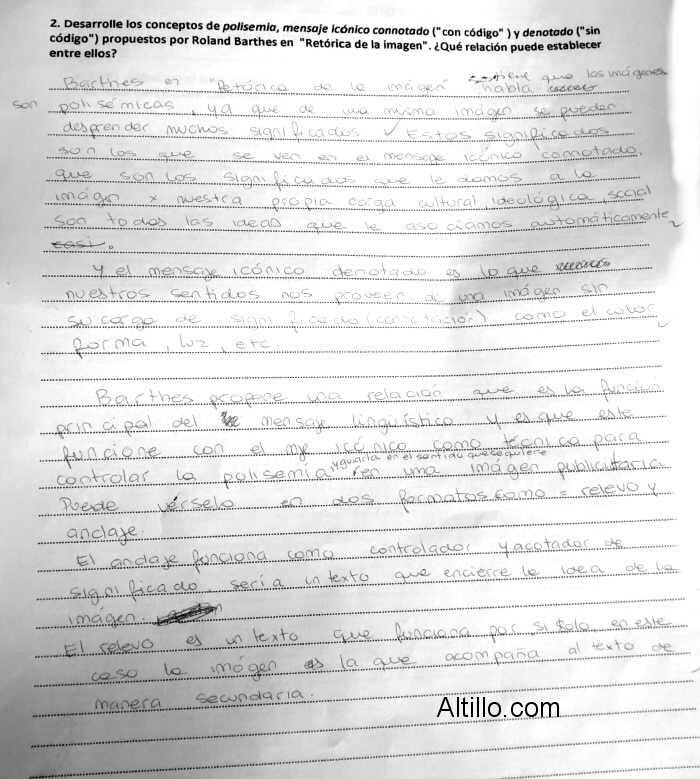 2. Desarrolle los conceptos de polisemia, mensaje icónico connotado ("con código" ) y denotado ("sin
código") propuestos por Roland Barthes en "Retórica de la imagen". ¿Qué relación puede establecer
entre ellos?
Barthes en "Retórica de la imágen" habla que las imágenes
son polisémicas, ya que de una misma imágen se puedan
desprender muchos significados ✓ Estos significados
son los que se ven en el mensage icónico connotado,
que son los significados que le damos a la
imágen x nuestra propia carga cultural, ideológica, social
son todas las ideas que le asociamos automáticamente
casi.
Y el mensage icónico denotado es lo que
nuestros sentidos nos proveen de una imágen sin
su carga de significado (connotación) como el color,
forma, luz, etc.
Barthes propone una relación que es la función
principal del mensage lingüístico y es que este
funcione con el mje icónico como técnica para
controlar la polisemia y guiarla en el sentido que se quiere en una imágen publicitaria
Puede vérselo en dos formatos como = relevo y
anclaje.
El anclaje funciona como controlador y acotador de
significado. sería un texto que encierre la idea de la
imágen.
El relevo es un texto que funciona por si solo, en este
caso la imágen es la que acompaña al texto de
manera secundaria.
Altillo.com